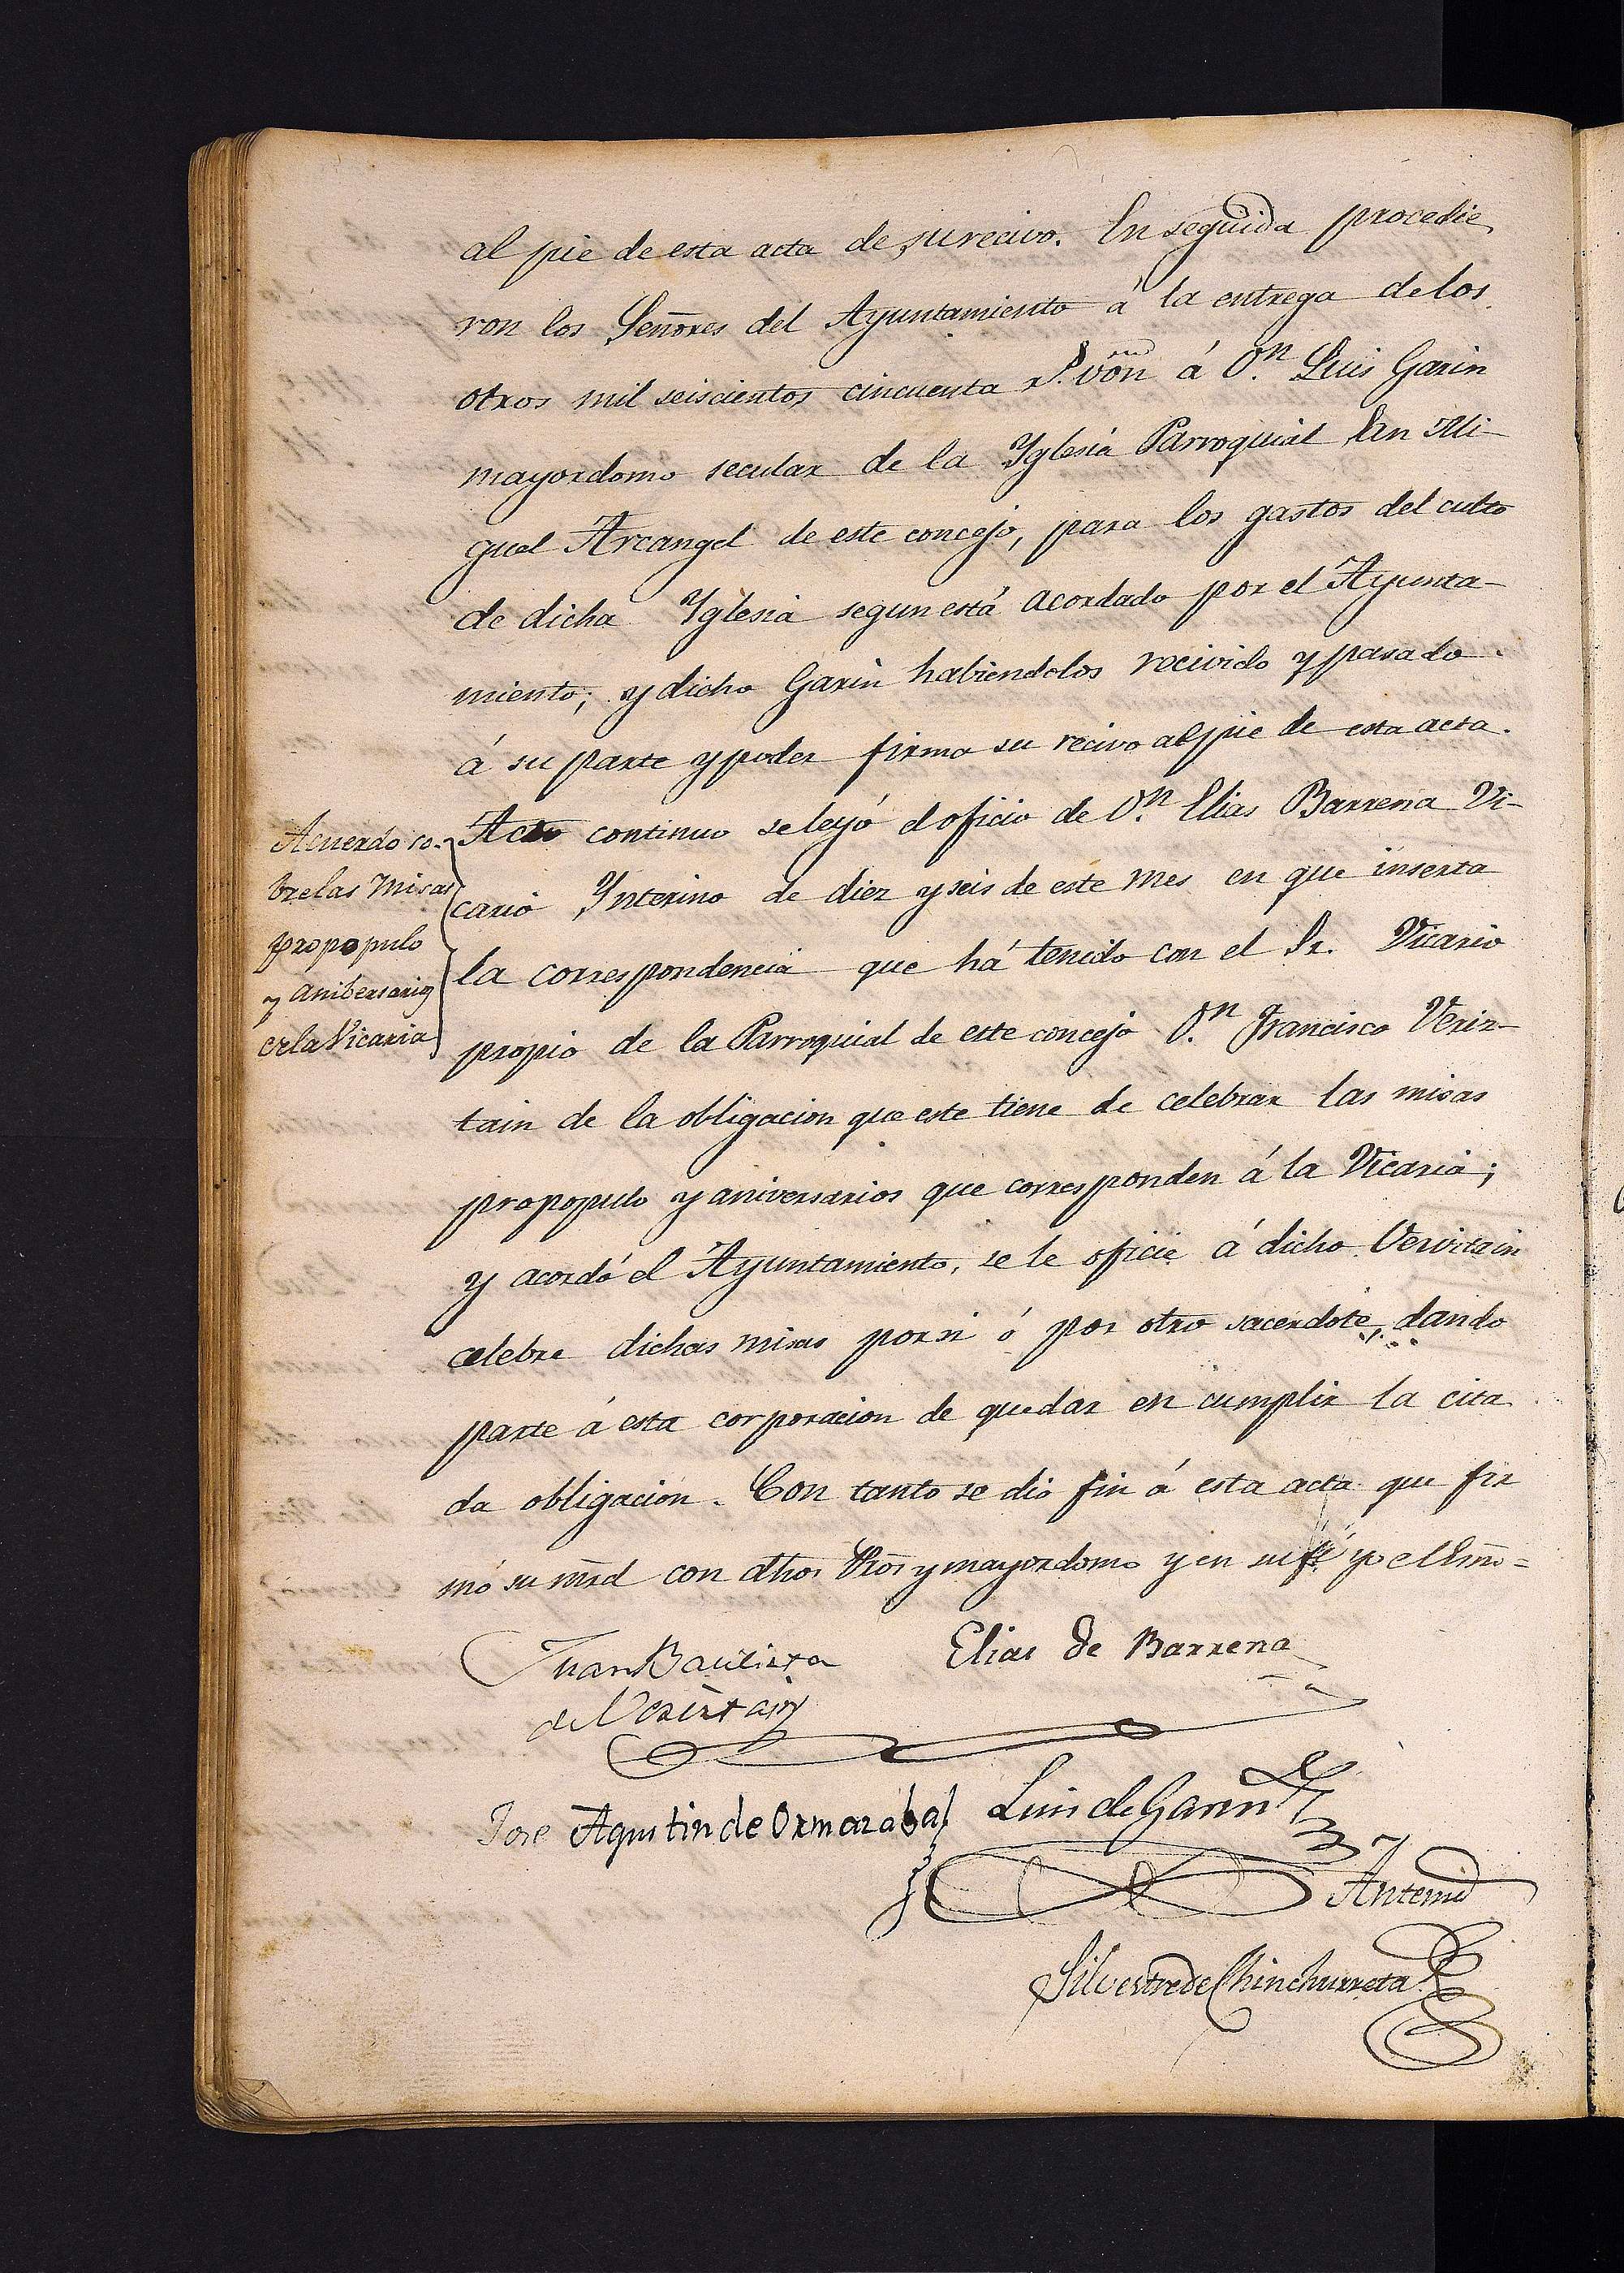 al pie de esta acta de su recivo. En seguida procedie
ron los Señores del Ayuntamiento á la entrega de los
otros mil seiscientos cincuenta rs. von á Dn. Luis Garin
mayordomo secular de la Yglesia Parroquial San Mi-
guel Arcangel de este concejo, para los gastos del culto
de dicha Yglesia segun está acordado por el Ayunta-
miento; y dicho Garin habiendolos recivido y pasado
á su parte y poder firma su recivo al pie de esta acta.
Acuerdo so-
bre las Misas
propopulo
y anibersarios
de la Vicaria
Acto continuo se leyó el oficio de Dn. Elias Barrena Vi-
cario Ynterino de diez y seis de este mes en que inserta
la correspondencia que há tenido con el Sr. Vicario
propio de la Parroquial de este concejo Dn. Francisco Veriz-
tain de la obligacion que este tiene de celebrar las misas
propopulo y aniversarios que corresponden á la Vicaria;
y acordó el Ayuntamiento, se le oficie á dicho Veriztain
celebre dichas misas por si ó por otro sacerdote, dando
parte á esta corporacion de quedar en cumplir la cita
da obligacion. Con tanto se dió fin á esta acta que fir
mó su mrd con dhos y mayordomo y en su fé yo el Smo=
Juan Bautista
de Veriztain
Elias de Barrena
Jose Agustin de Ormazabal
Luis de Garin
Antemi
Silvestre de Chinchurreta